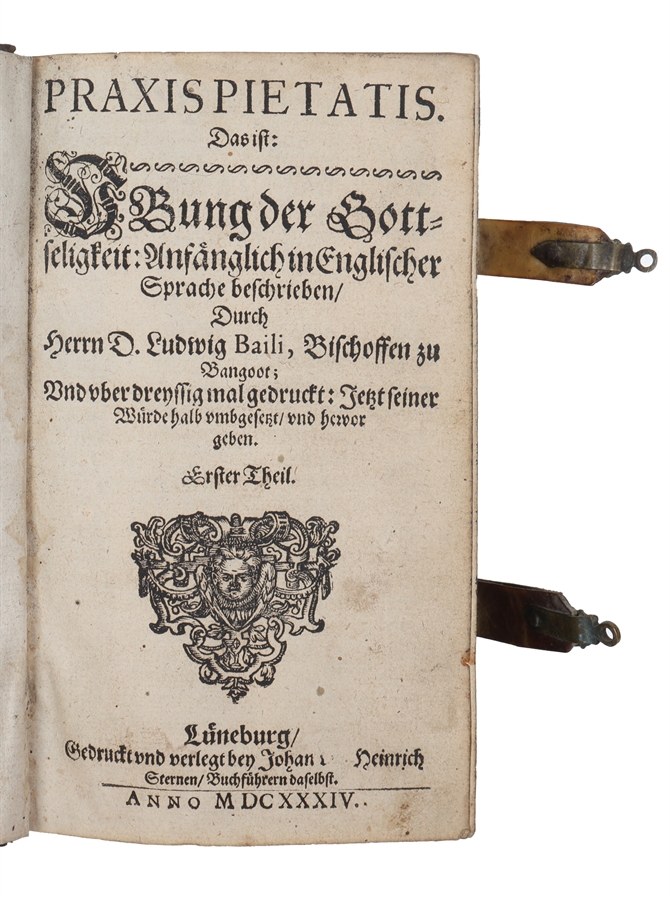 PRAXIS PIETATIS.
Das ist:
VBung der Gott-
seligkeit: Anfänglich in Englischer
Sprache beschrieben/
Durch
Herrn D. Ludwig Baili, Bischoffen zu
Bangoot;
Vnd vber dreyssig mal gedruckt: Jetzt seiner
Würde halb vmbgesetzt/ vnd hervor
geben.
Erster Theil.
Lüneburg/
Gedruckt vnd verlegt bey Johan Heinrich
Sternen/ Buchführern daselbst.
ANNO MDCXXXIV.